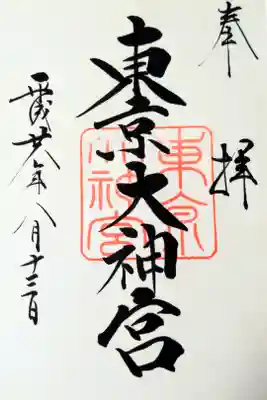 奉拝
東京大神宮
平成廿八年八月十三日
東京大神宮